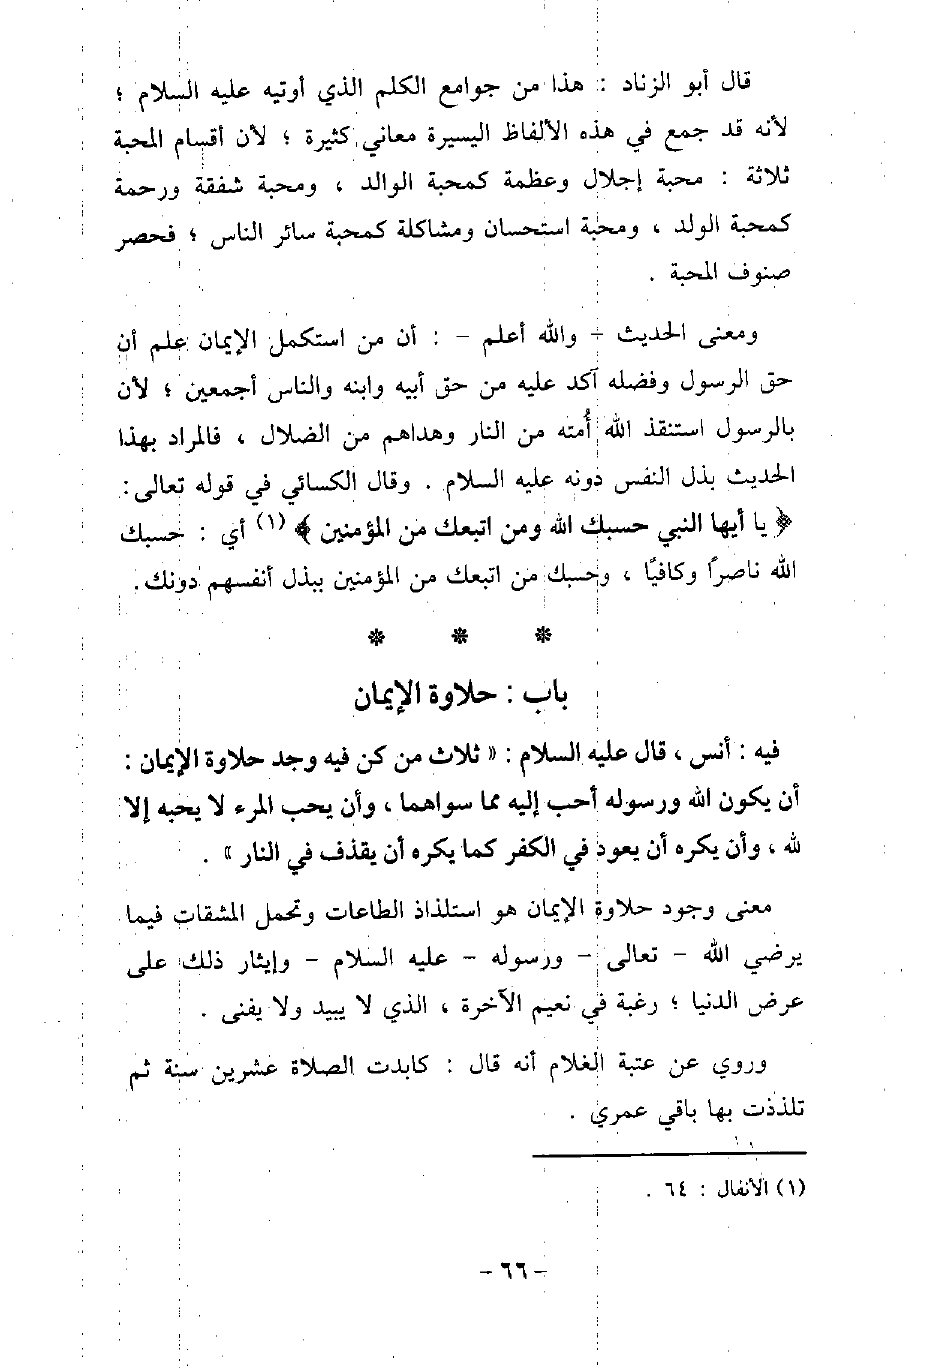 قال أبو الزناد : هذا من جوامع الكلم الذي أوتيه عليه السلام ؛
لأنه قد جمع في هذه الألفاظ اليسيرة معاني كثيرة ؛ لأن أقسام المحبة
ثلاثة : محبة إجلال وعظمة كمحبة الوالد ، ومحبة شفقة ورحمة
كمحبة الولد ، ومحبة استحسان ومشاكلة كمحبة سائر الناس ؛ فحصر
صنوف المحبة .
ومعنى الحديث – والله أعلم – : أن من استكمل الإيمان علم أن
حق الرسول وفضله آكد عليه من حق أبيه وابنه والناس أجمعين ؛ لأن
بالرسول استنقذ الله أُمته من النار وهداهم من الضلال ، فالمراد بهذا
الحديث بذل النفس دونه عليه السلام . وقال الكسائي في قوله تعالى :
﴿ يا أيها النبي حسبك الله ومن اتبعك من المؤمنين ﴾ (١) أي : حسبك
الله ناصرًا وكافيًا ، وحسبك من اتبعك من المؤمنين ببذل أنفسهم دونك .
* * *
باب : حلاوة الإيمان
فيه : أنس ، قال عليه السلام : « ثلاث من كن فيه وجد حلاوة الإيمان :
أن يكون الله ورسوله أحب إليه مما سواهما ، وأن يحب المرء لا يحبه إلا
لله ، وأن يكره أن يعود في الكفر كما يكره أن يقذف في النار » .
معنى وجود حلاوة الإيمان هو استلذاذ الطاعات وتحمل المشقات فيما
يرضي الله – تعالى – ورسوله – عليه السلام – وإيثار ذلك على
عرض الدنيا ؛ رغبة في نعيم الآخرة ، الذي لا يبيد ولا يفنى .
وروي عن عتبة الغلام أنه قال : كابدت الصلاة عشرين سنة ثم
تلذذت بها باقي عمري .
(١) الأنفال : ٦٤ .
– ٦٦ –